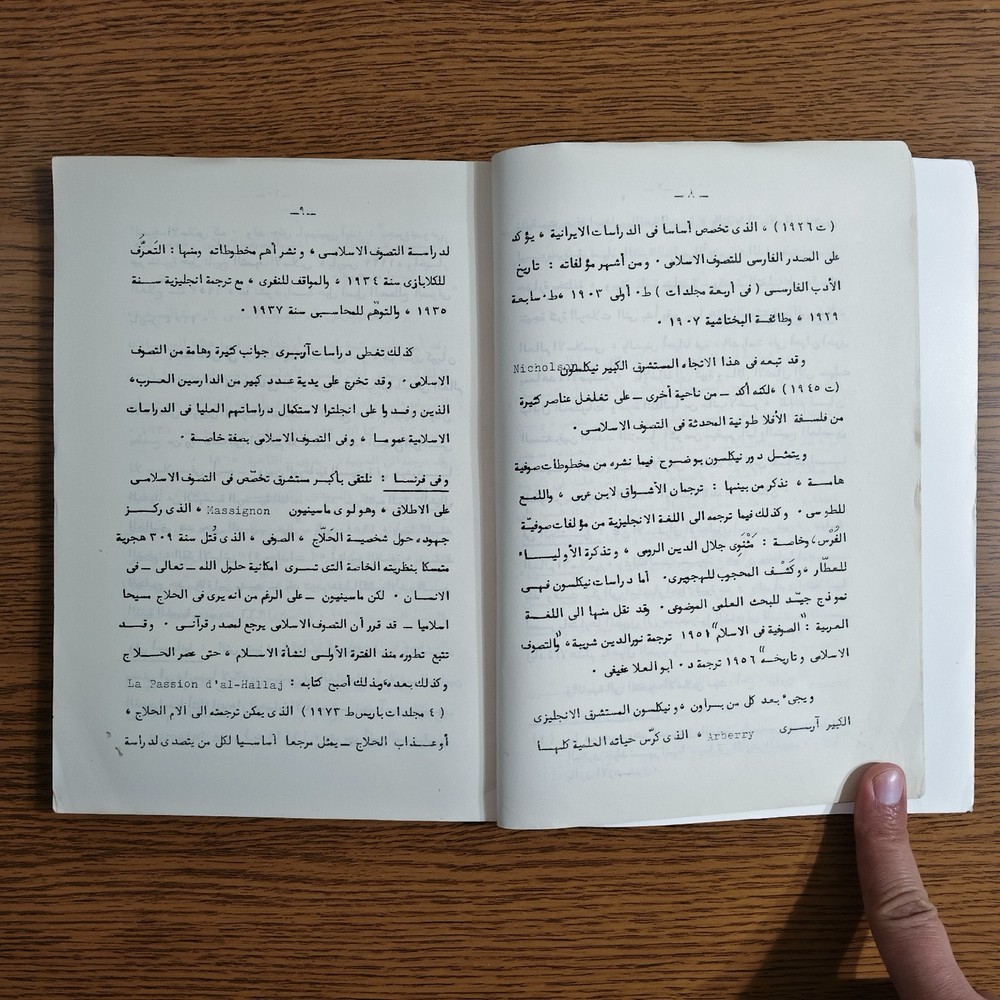 ـ ٨ ـ
( ت ١٩٢٦ ) ، الذى تخصص أساسا فى الدراسات الايرانية ، يؤكد
على المصدر الفارسى للتصوف الاسلامى ٠ ومن أشهر مؤلفاته : تاريخ
الأدب الفارسى ( فى أربعة مجلدات ) ط٠ أولى ١٩٠٣ ،ط٠سابعة
١٩٢٩ ، وطائفة البختاشية ١٩٠٧ ٠
وقد تبعه فى هذا الاتجاه المستشرق الكبير نيكلسون Nicholson
( ت ١٩٤٥ ) ،لكنه أكد ــ من ناحية أخرى ــ على تغلغل عناصر كثيرة
من فلسفة الأفلاطونية المحدثة فى التصوف الاسلامى ٠
ويتمثل دور نيكلسون بوضوح فيما نشره من مخطوطات صوفية
هامـة ، نذكر من بينها : ترجمان الأشواق لابن عربى ، واللمع
للطوسى ٠ وكذلك فيما ترجمه الى اللغة الانجليزية من مؤلفات صوفيّة
الفُرْس، وخاصة : مَثْنَوِى جلال الدين الرومى ، وتذكرة الأوليـــاء
للعطّار ، وكَشْف المحجوب للهجويرى ٠ أما دراسات نيكلسون فهـى
نموذج جيّـد للبحث العلمى الموضوعى ٠ وقد نقل منها الى اللغــة
العربية : "الصوفية فى الاسلام" ١٩٥١ ترجمة نورالدين شريبة، "والتصوف
الاسلامى وتاريخـه" ١٩٥٦ ترجمة د ٠ أبو العلا عفيفى ٠
ويجىء بعد كل من بـراون ، ونيكلسون المستشرق الانجليزى
الكبير آربــرى Arberry ، الذى كرّس حياته العلمية كلهـــا
ـ ٩ ـ
لدراسـة التصوف الاسلامـى ، ونشر أهم مخطوطاته ومنها : التَعرُّف
للكلاباذى سنة ١٩٣٤ ، والمواقف للنفرى ، مع ترجمة انجليزية ســنة
١٩٣٥ ، والتوهّم للمحاسـبى سنة ١٩٣٧ ٠
كذلك تغطى دراسات آربـرى جوانب كثيرة وهامة من التصوف
الاسلامى ٠ وقد تخرج على يدية عـدد كبير من الدارسين العـرب،
الذين وفـدوا على انجلترا لاستكمال دراساتهم العليا فى الدراسات
الاسلامية عمومـا ، وفى التصوف الاسلامى بصفة خاصـة ٠
وفى فرنسـا : نلتقى بأكبـر مستشرق تخصّص فى التصوف الاسلامـى
على الاطلاق ، وهو لوى ماسينيون Massignon ، الذى ركـــز
جهوده حول شخصية الحَلّاج ، الصوفى ، الذى قُتل سنة ٣٠٩ هجرية
متمسكا بنظريته الخاصة التى تــرى امكانية حلول الله ــ تعالى ــ فى
الانســان ٠ لكن ماسينيون ــ على الرغم من أنه يرى فى الحلاج مسيحا
اسلاميا ــ قد قرر أن التصوف الاسلامى يرجع لمصدر قرآنـى ٠ وقــد
تتبع تطوره منذ الفترة الأولـى لنشأة الاسـلام ، حتى عصر الحـــلاج
وكذلك بعده، وبذلك أصبح كتابه : La Passion d'al-Hallaj
( ٤ مجلدات باريس ط ١٩٧٣ ) الذى يمكن ترجمته الى آلام الحلاج ،
أو عـذاب الحلاج ــ يمثل مرجعا أساسـيا لكل من يتصدى لدراسة